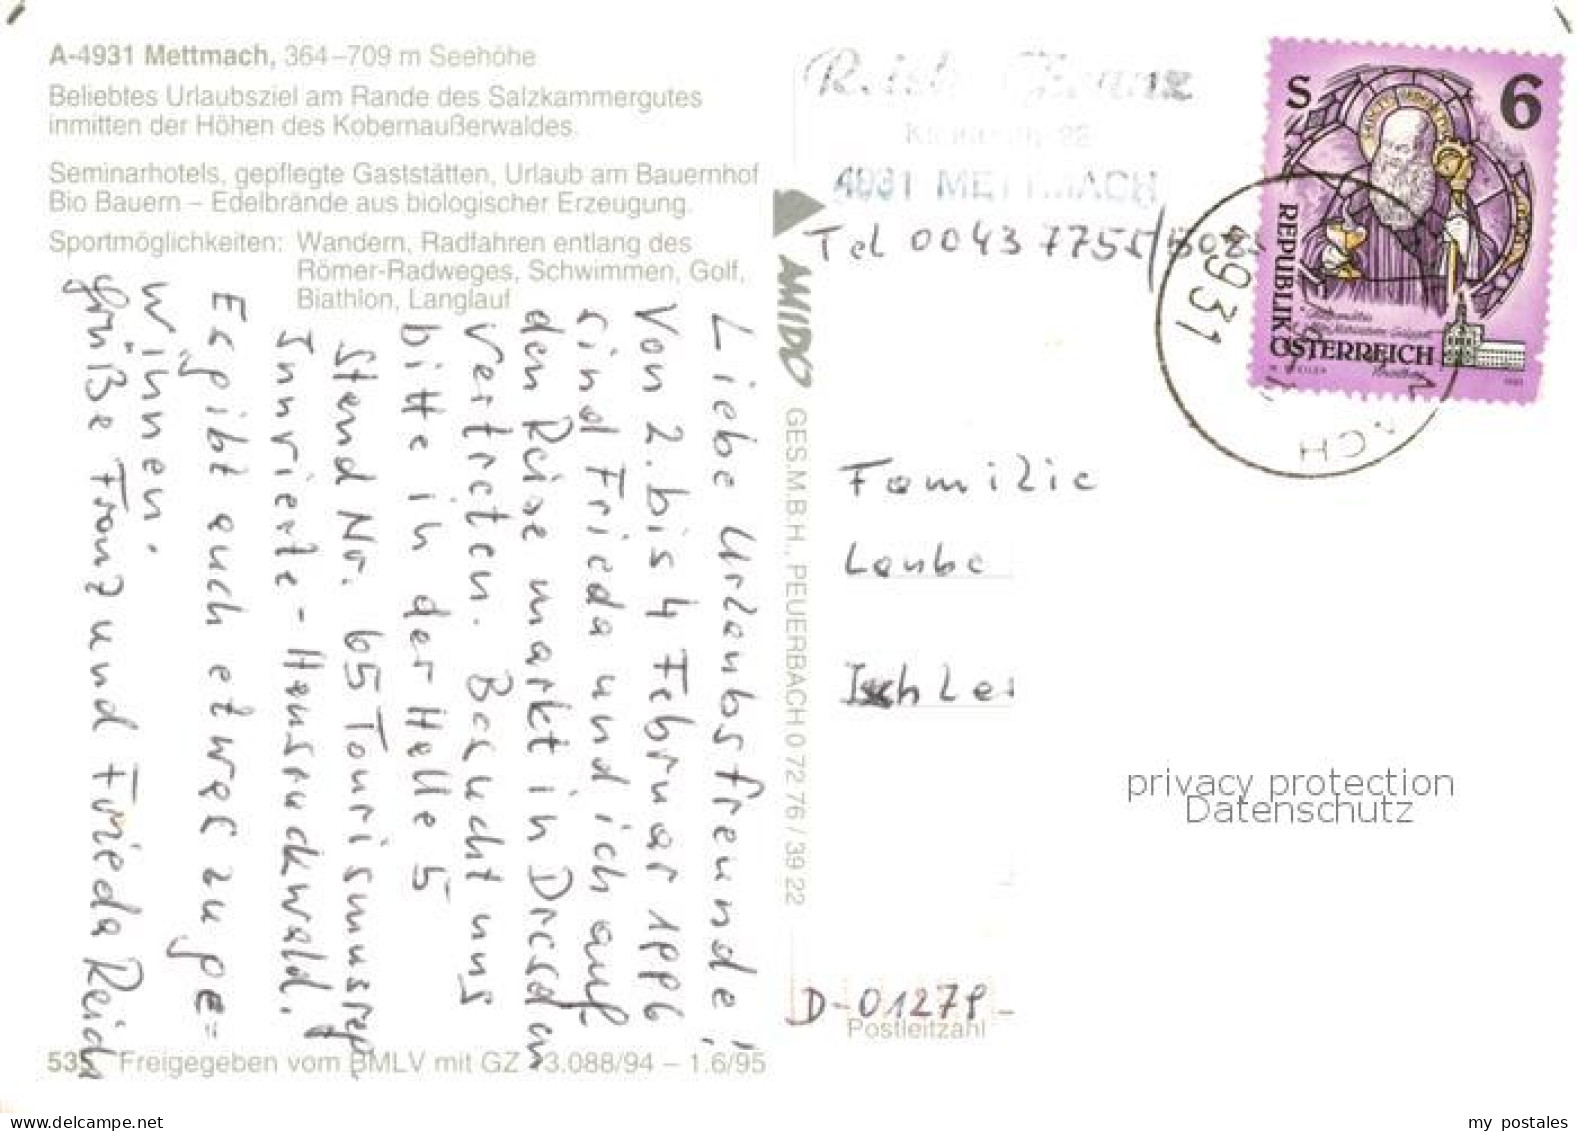 A-4931 Mettmach, 364–709 m Seehöhe
Beliebtes Urlaubsziel am Rande des Salzkammergutes
inmitten der Höhen des Kobernaußerwaldes.
Seminarhotels, gepflegte Gaststätten, Urlaub am Bauernhof
Bio Bauern – Edelbrände aus biologischer Erzeugung.
Sportmöglichkeiten: Wandern, Radfahren entlang des
Römer-Radweges, Schwimmen, Golf,
Biathlon, Langlauf
Liebe Urlaubsfreunde!
Von 2. bis 4 Februar 1996
sind Frieda und ich auf
den Reise markt in Dresden
vertreten. Besucht uns
bitte in der Halle 5
Stand Nr. 65 Tourismusrep.
Innviertl-Hausruckwald.
Es gibt auch etwas zu ge=
winnen.
Grüße Franz und Frieda Reich
AMIDO GES.M.B.H., PEUERBACH 0 72 76 / 39 22
Freigegeben vom BMLV mit GZ 13.088/94 – 1.6/95
Franz
4931 METTMACH
Tel 0043 7755/
S 6
REPUBLIK
ÖSTERREICH
4931
Familie
Laube
D-01279
Postleitzahl
privacy protection
Datenschutz
www.delcampe.net
my postales